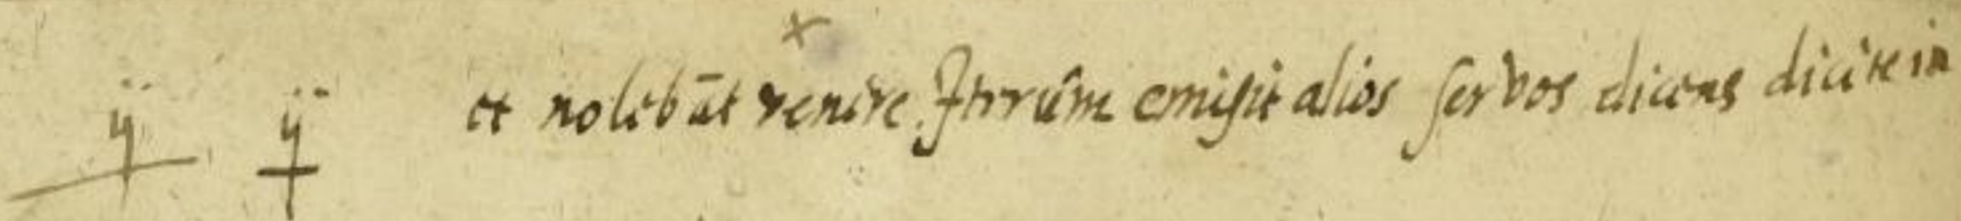 ij ij et nolebāt venire. Iterûm emisit alios servos dicens dicite in